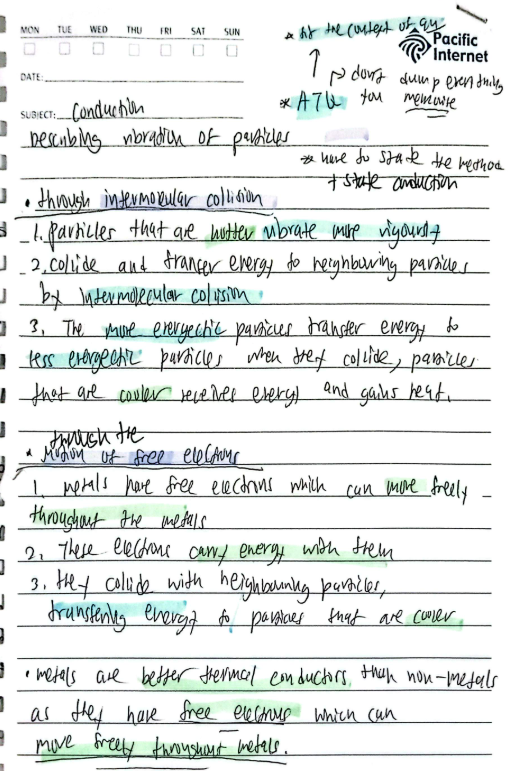 MON TUE WED THU FRI SAT SUN
DATE:
SUBJECT: Conduction
Pacific
Internet
* fit the context of qu
↑ ↱ dont dump everything
* ATQ you memorise
Describing vibration of particles
* have to state the method
+ state conduction
• through intermolecular collision
1. particles that are hotter vibrate more vigourously
2. collide and transfer energy to neighbouring particles
by intermolecular collision
3. The more energectic particles transfer energy to
less energectic particles when they collide, particles
that are cooler receives energy and gains heat.
through the
• Motion of free electrons
1. Metals have free electrons which can move freely
throughout the metals
2. These electrons carry energy with them
3. they collide with neighbouring particles,
transfering energy to particles that are cooler
• metals are better thermal conductors than non-metals
as they have free electrons which can
move freely throughout metals.